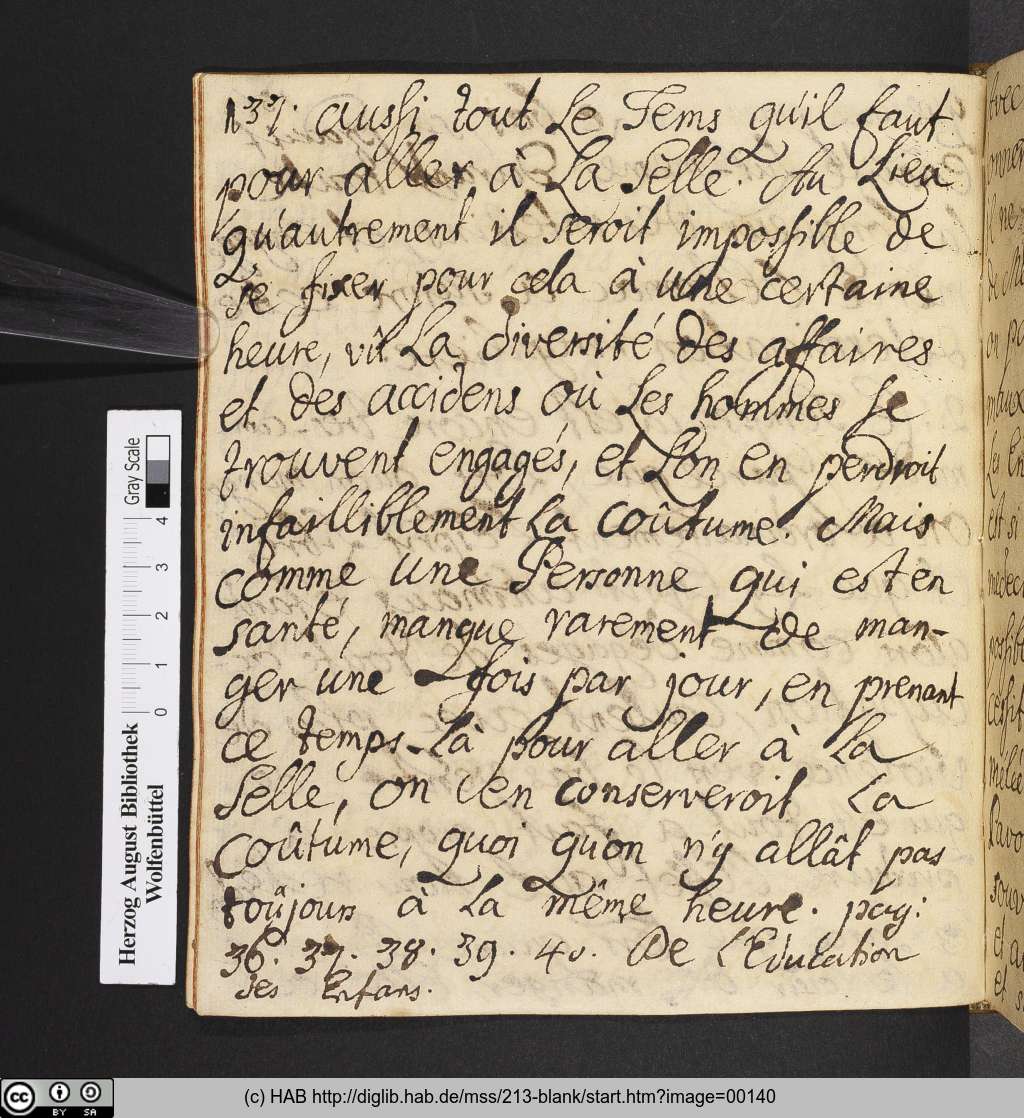 137. aussi tout Le Tems qu'il faut
pour aller à La Selle. Au Lieu
qu'autrement il seroit impossible de
se fixer pour cela à une certaine
heure, vû La diversité des affaires
et des accidens où Les hommes se
trouvent engagés, et L'on en perdroit
infailliblement La coûtume. Mais
comme une Personne qui est en
santé, manque rarement de man-
ger une fois par jour, en prenant
ce temps-Là pour aller à La
Selle, on en conserveroit La
coûtume, quoi qu'on n'y allât pas
toûjours à La même heure. pag:
36. 37. 38. 39. 40. De l'Education
des Enfans.
Herzog August Bibliothek
Wolfenbüttel
Gray Scale
0 1 2 3 4
cc BY SA
(c) HAB http://diglib.hab.de/mss/213-blank/start.htm?image=00140